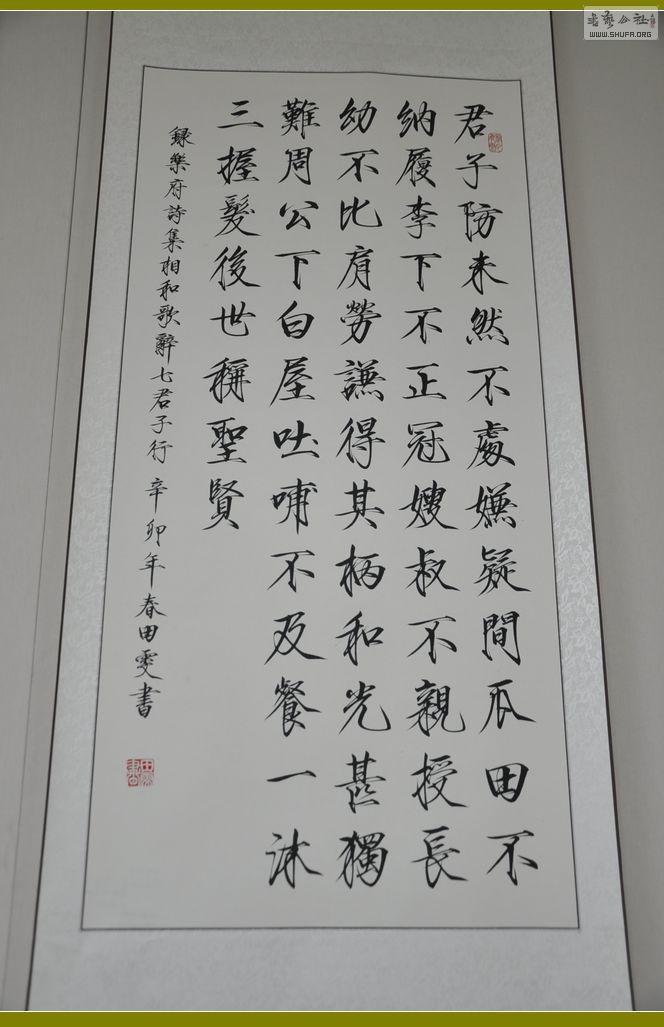 君子防未然不處嫌疑間瓜田不
納履李下不正冠嫂叔不親授長
幼不比肩勞謙得其柄和光甚獨
難周公下白屋吐哺不及餐一沐
三握髮後世稱聖賢
録樂府詩集相和歌辭七君子行 辛卯年春田雯書
書藝公社
WWW.SHUFA.ORG